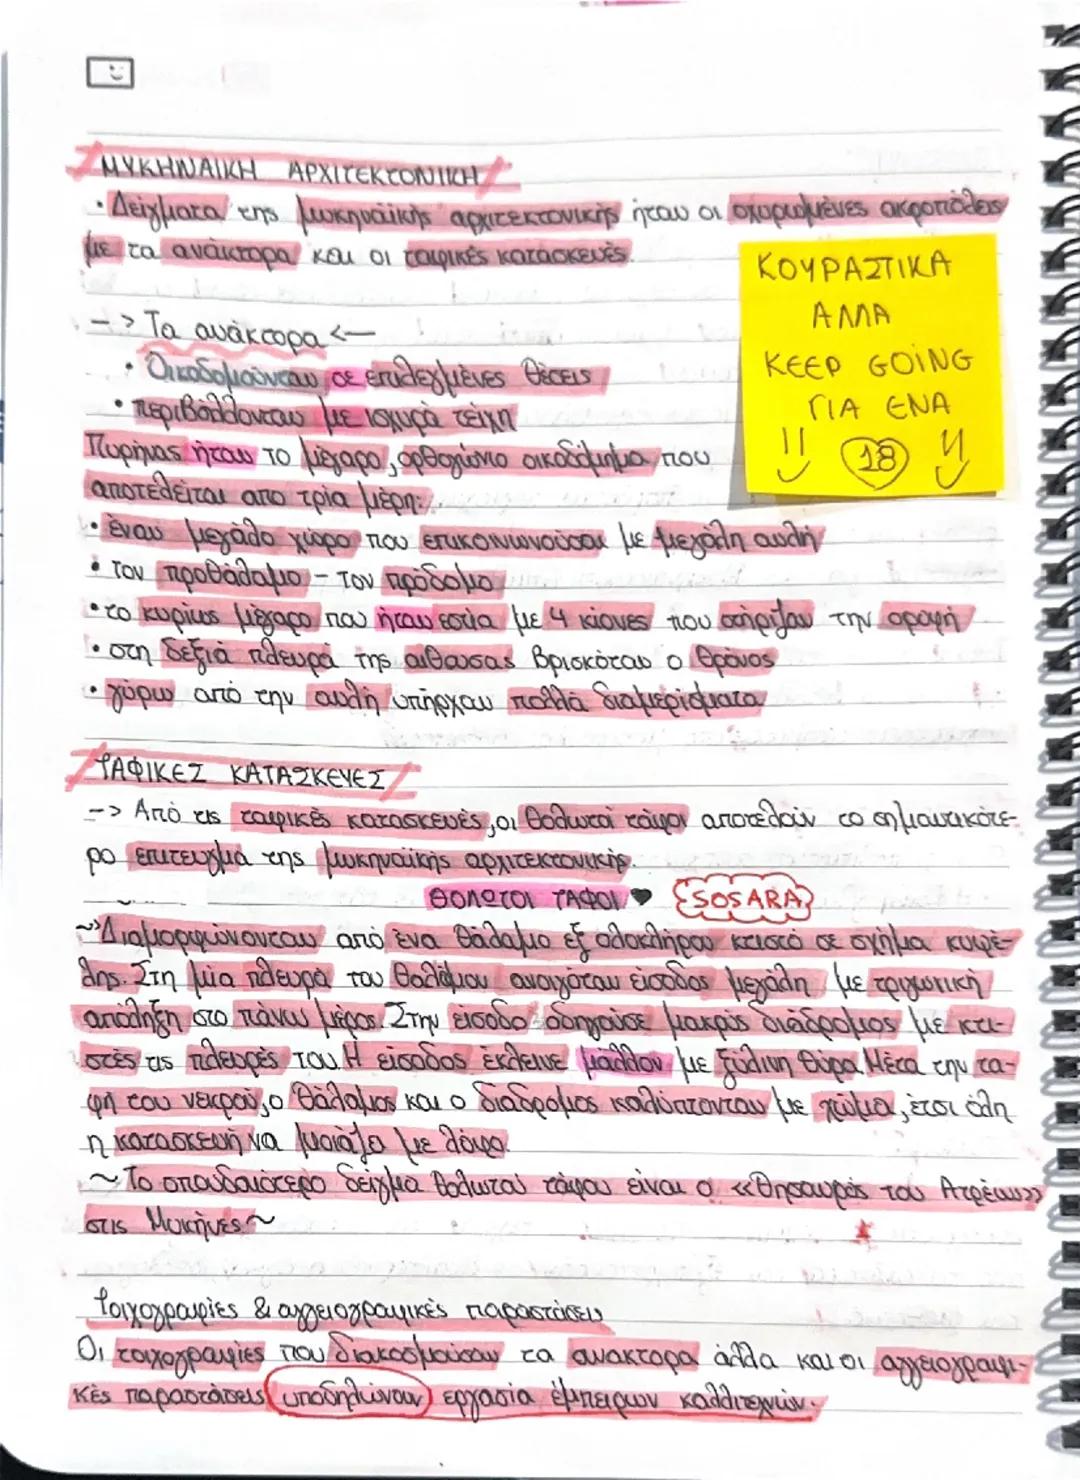 ΜΥΚΗΝΑΙΚΗ ΑΡΧΙΤΕΚΤΟΝΙΚΗ
• Δείγματα της μυκηναϊκής αρχιτεκτονικής ήταν οι οχυρωμένες ακροπόλεις
με τα ανάκτορα και οι ταφικές κατασκευές.
ΚΟΥΡΑΣΤΙΚΑ
ΑΛΛΑ
KEEP GOING
ΓΙΑ ΕΝΑ
18
-> Τα ανάκτορα <-
• Οικοδομούνταν σε επιλεγμένες θέσεις
• περιβάλλονταν με ισχυρά τείχη
Πυρήνας ήταν το μέγαρο, ορθογώνιο οικοδόμημα που
αποτελείται απο τρία μέρη:
• έναν μεγάλο χώρο που επικοινωνούσαι με μεγάλη αυλή
• τον προθάλαμο - τον πρόδομο
• το κυρίως μέγαρο που ήταν εστία με 4 κίονες που στήριζαν την οροφή
• στη δεξιά πλευρά της αιθουσας βρισκόταν ο θρόνος
• γύρω από την αυλή υπήρχαν πολλά διαμερίσματα
ΤΑΦΙΚΕΣ ΚΑΤΑΣΚΕΥΕΣ
-> Από τις ταφικές κατασκευές, οι θολωτοί τάφοι αποτελούν το σημαντικότε-
ρο επιτευγμα της μυκηναϊκής αρχιτεκτονικής.
ΘΟΛΩΤΟΙ ΤΑΦΟΙ ♥ SOSARA
~Διαμορφώνονταν από ένα θάλαμο εξ ολοκλήρου κτιστό σε σχήμα κυψέ-
λης. Στη μία πλευρά του θαλάμου ανοιγόταν είσοδος μεγάλη με τριγωνική
απόληξη στο πάνω μέρος. Στην είσοδο οδηγούσε μακρύς διάδρομος με κτι-
στές τις πλευρές του. Η είσοδος έκλεινε μάλλον με ξύλινη θύρα. Μέτα την τα-
φή του νεκρού, ο θάλαμος και ο διάδρομος καλύπτονταν με χώμα, έτσι όλη
η κατασκευή να μοιάζει με λόφο.
~ Το σπουδαιότερο δείγμα θολωτού τάφου είναι ο «Θησαυρός του Ατρέως»
στις Μυκήνες ~
Τοιχογραφίες & αγγειογραφικές παραστάσεις
Οι τοιχογραφίες που διακοσμούσαν τα ανακτορα άλλα και οι αγγειογραφι-
κές παραστάσεις υποδηλώνουν εργασία έμπειρων καλλιτεχνών.